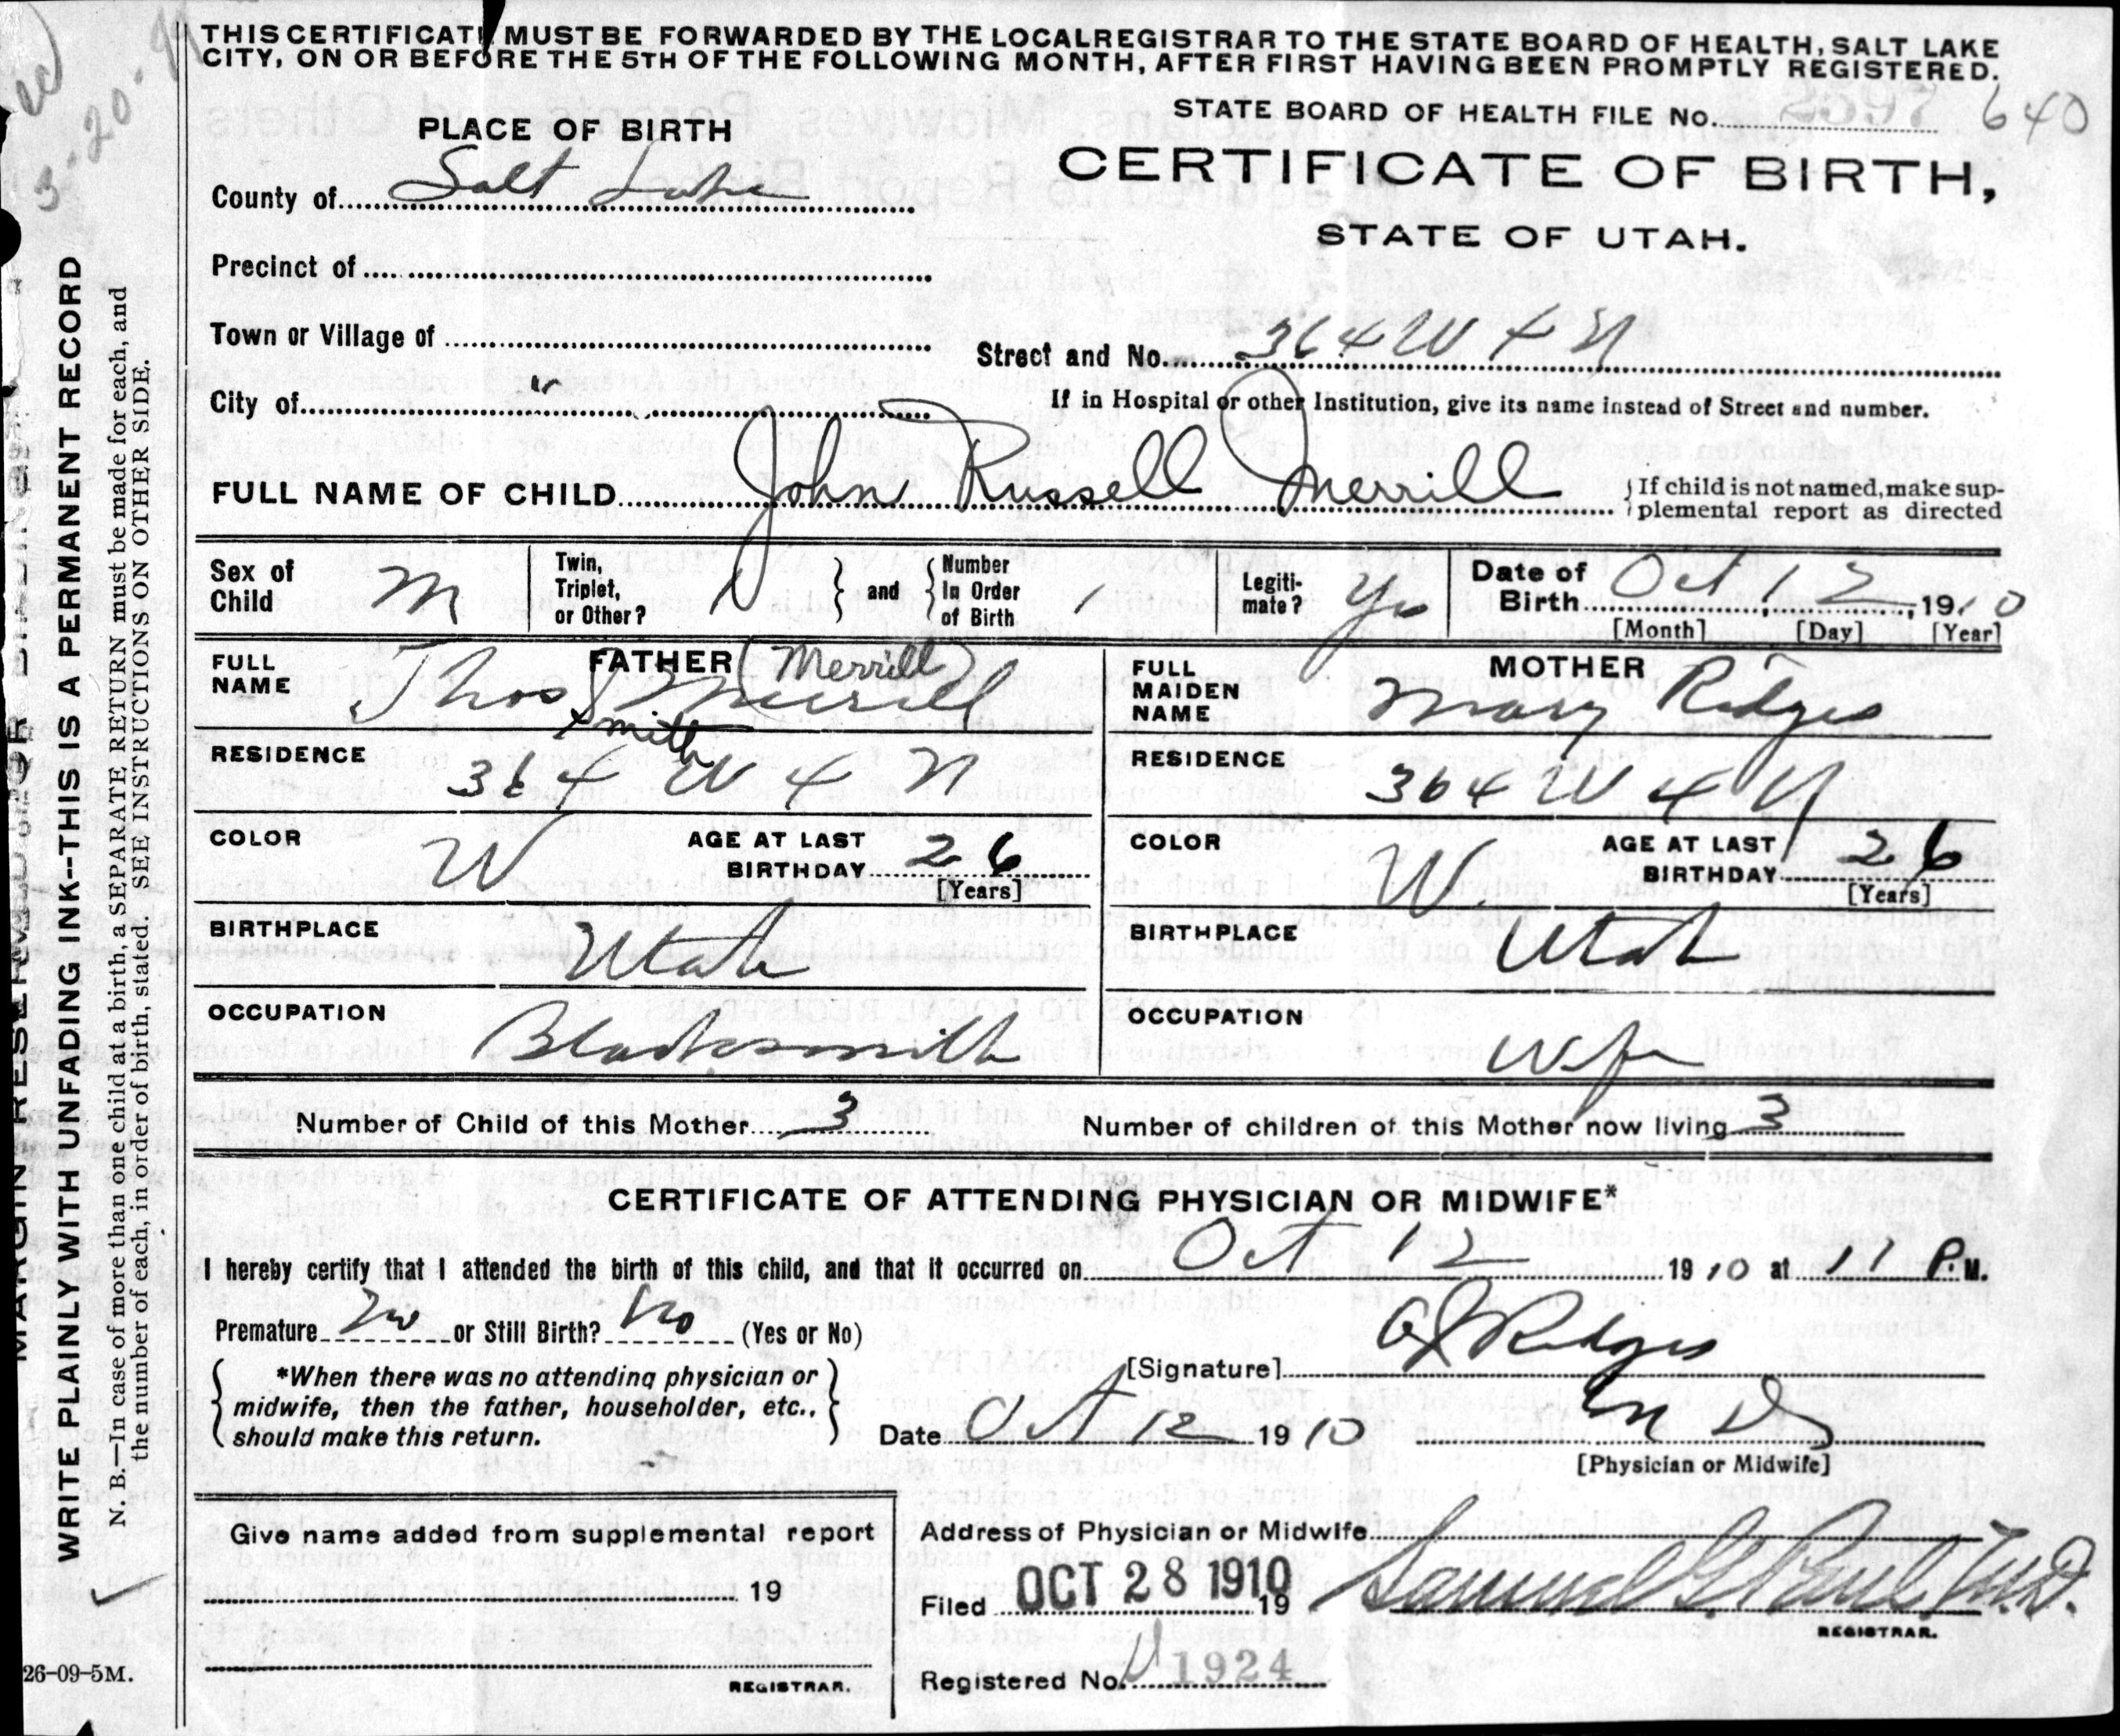 THIS CERTIFICATE MUST BE FORWARDED BY THE LOCAL REGISTRAR TO THE STATE BOARD OF HEALTH, SALT LAKE
CITY, ON OR BEFORE THE 5TH OF THE FOLLOWING MONTH, AFTER FIRST HAVING BEEN PROMPTLY REGISTERED.
STATE BOARD OF HEALTH FILE No. 2597 640
PLACE OF BIRTH
CERTIFICATE OF BIRTH,
STATE OF UTAH.
County of Salt Lake
Precinct of
Town or Village of
Street and No. 364 W 4 N
City of "
If in Hospital or other Institution, give its name instead of Street and number.
FULL NAME OF CHILD John Russell Merrill
If child is not named, make sup-
plemental report as directed
Sex of Child M
Twin, Triplet, or Other?
and
Number In Order of Birth 1
Legiti-mate? Yes
Date of Birth Oct 12, 1910
[Month] [Day] [Year]
FATHER
FULL NAME Thos S Merrill (Merrill)
Smith
RESIDENCE 364 W 4 N
COLOR W
AGE AT LAST BIRTHDAY 26
[Years]
BIRTHPLACE Utah
OCCUPATION Blacksmith
MOTHER
FULL MAIDEN NAME Mary Ridges
RESIDENCE 364 W 4 N
COLOR W.
AGE AT LAST BIRTHDAY 26
[Years]
BIRTHPLACE Utah
OCCUPATION Wife
Number of Child of this Mother 3
Number of children of this Mother now living 3
CERTIFICATE OF ATTENDING PHYSICIAN OR MIDWIFE*
I hereby certify that I attended the birth of this child, and that it occurred on Oct 12 1910 at 11 P.M.
Premature No or Still Birth? No (Yes or No)
*When there was no attending physician or
midwife, then the father, householder, etc.,
should make this return.
[Signature] Ridges
M D
[Physician or Midwife]
Date Oct 12 1910
Give name added from supplemental report
19
REGISTRAR.
Address of Physician or Midwife
Filed OCT 28 1910 19
Samuel G. Paul, M.D.
REGISTRAR.
Registered No. 1924
MARGIN RESERVED FOR BINDING
WRITE PLAINLY WITH UNFADING INK--THIS IS A PERMANENT RECORD
N. B.—In case of more than one child at a birth, a SEPARATE RETURN must be made for each, and
the number of each, in order of birth, stated. SEE INSTRUCTIONS ON OTHER SIDE.
26-09-5M.